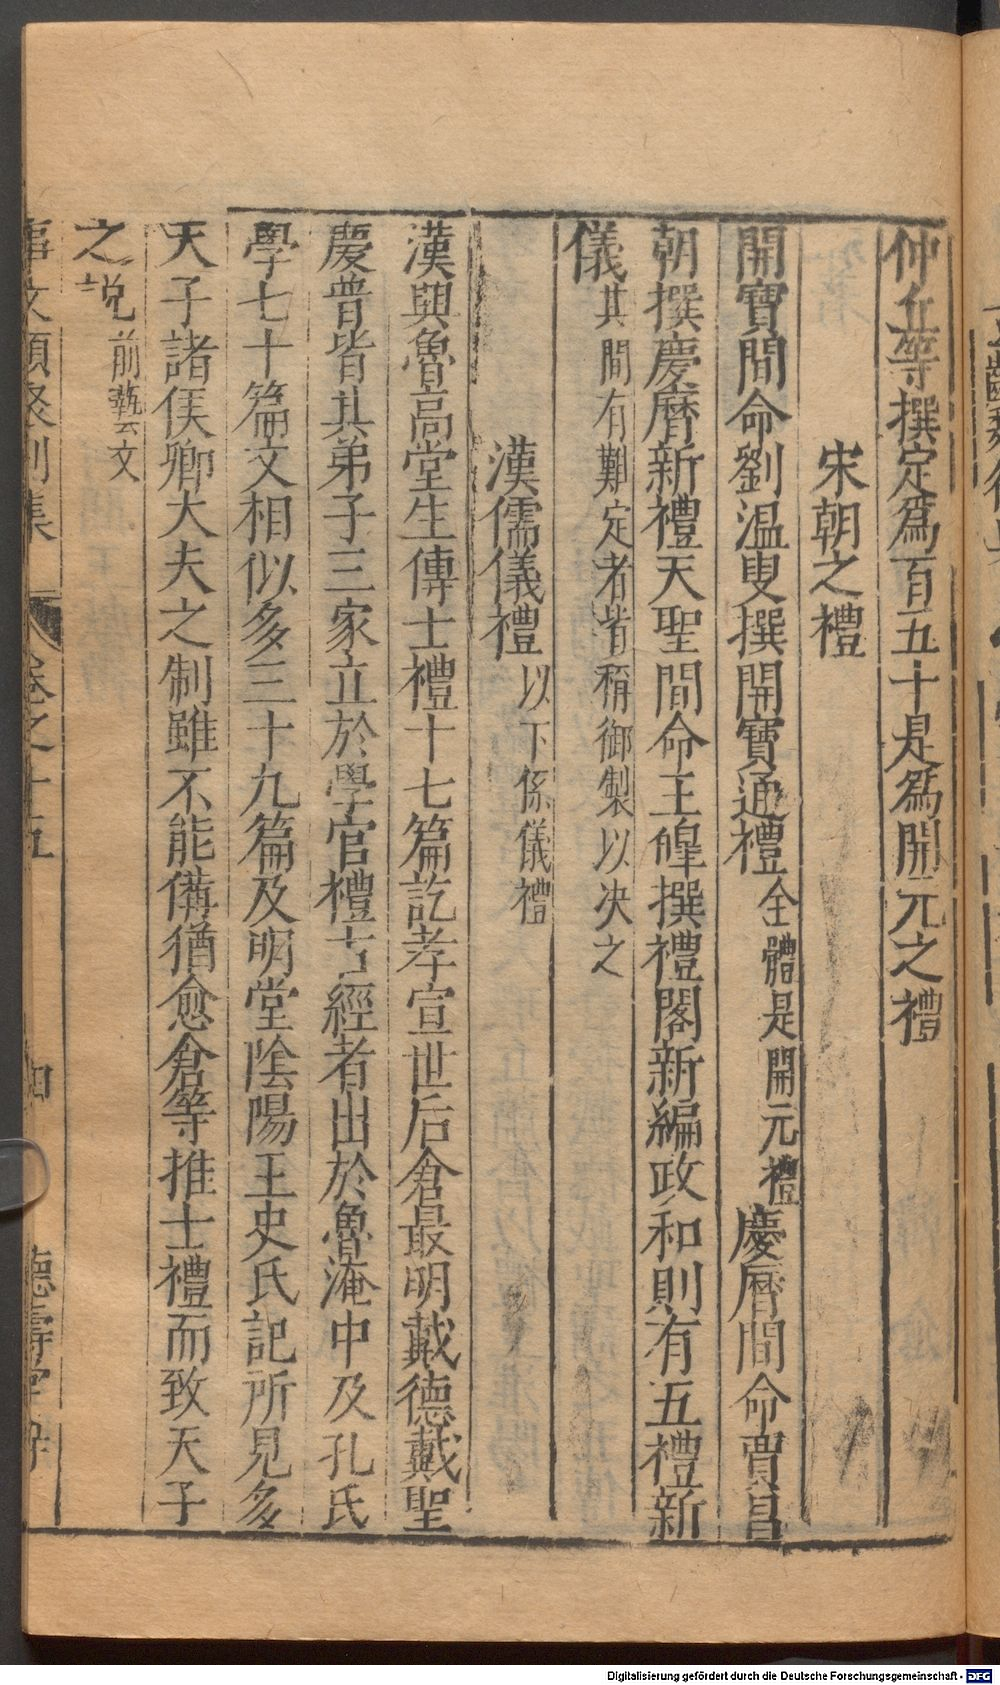 仲丘等撰定爲百五十是爲開元之禮
宋朝之禮
開寶間命劉温叟撰開寶通禮全體是開元禮慶曆間命賈昌
朝撰慶曆新禮天聖間命王皥撰禮閣新編政和則有五禮新
儀其間有難定者皆稱御製以决之
漢儒儀禮以下係儀禮
漢興魯高堂生傳士禮十七篇訖孝宣世后倉最明戴德戴聖
慶普皆其弟子三家立於學官禮古經者出於魯淹中及孔氏
學七十篇文相似多三十九篇及明堂陰陽王史氏記所見多
天子諸侯卿大夫之制雖不能備猶愈倉等推士禮而致天子
之説前藝文
事文類聚別集 卷之十五 四 德壽堂
Digitalisierung gefördert durch die Deutsche Forschungsgemeinschaft - DFG